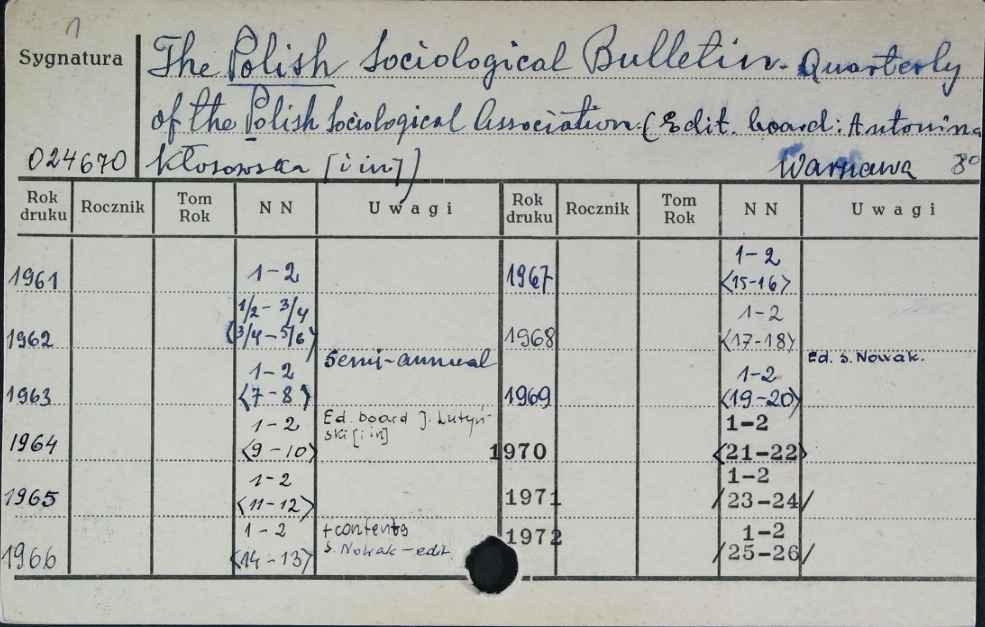 1
Sygnatura
The Polish Sociological Bulletin. Quarterly
of the Polish Sociological Association. (Edit. board: Antonina
024670 Kłosowska [i in]) Warszawa 8°
Rok druku Rocznik Tom Rok NN Uwagi Rok druku Rocznik Tom Rok NN Uwagi
1961 1-2
1962 1/2-3/4
(3/4-5/6)
Semi-annual
1963 1-2
<7-8>
1964 1-2
<9-10>
Ed. board J. Lutyń-
ski [i in]
1965 1-2
<11-12>
1966 1-2
<14-13>
+contents
S. Nowak-edit.
1967 1-2
<15-16>
1968 1-2
<17-18>
Ed. S. Nowak.
1969 1-2
<19-20>
1970 1-2
<21-22>
1971 1-2
/23-24/
1972 1-2
/25-26/